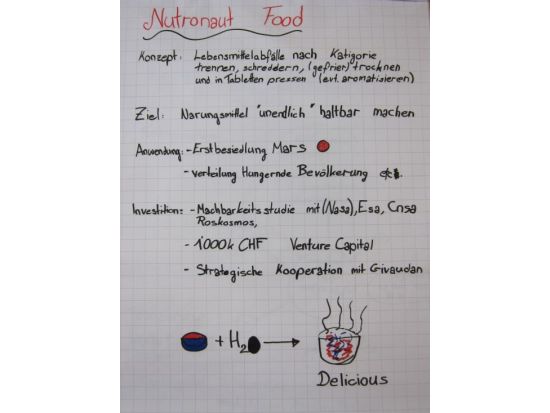 Nutronaut Food
Konzept: Lebensmittelabfälle nach Katigorie
trennen, schreddern, (gefrier) trocknen
und in Tabletten pressen (evt. aromatisieren)
Ziel: Narungsmittel "unendlich" haltbar machen
Anwendung: - Erstbesiedlung Mars
- verteilung Hungernde Bevölkerung etc.
Investition: - Machbarkeitsstudie mit (Nasa), Esa, Cnsa
Roskosmos,
- 1000k CHF Venture Capital
- Strategische Kooperation mit Givaudan
+ H2O
Delicious